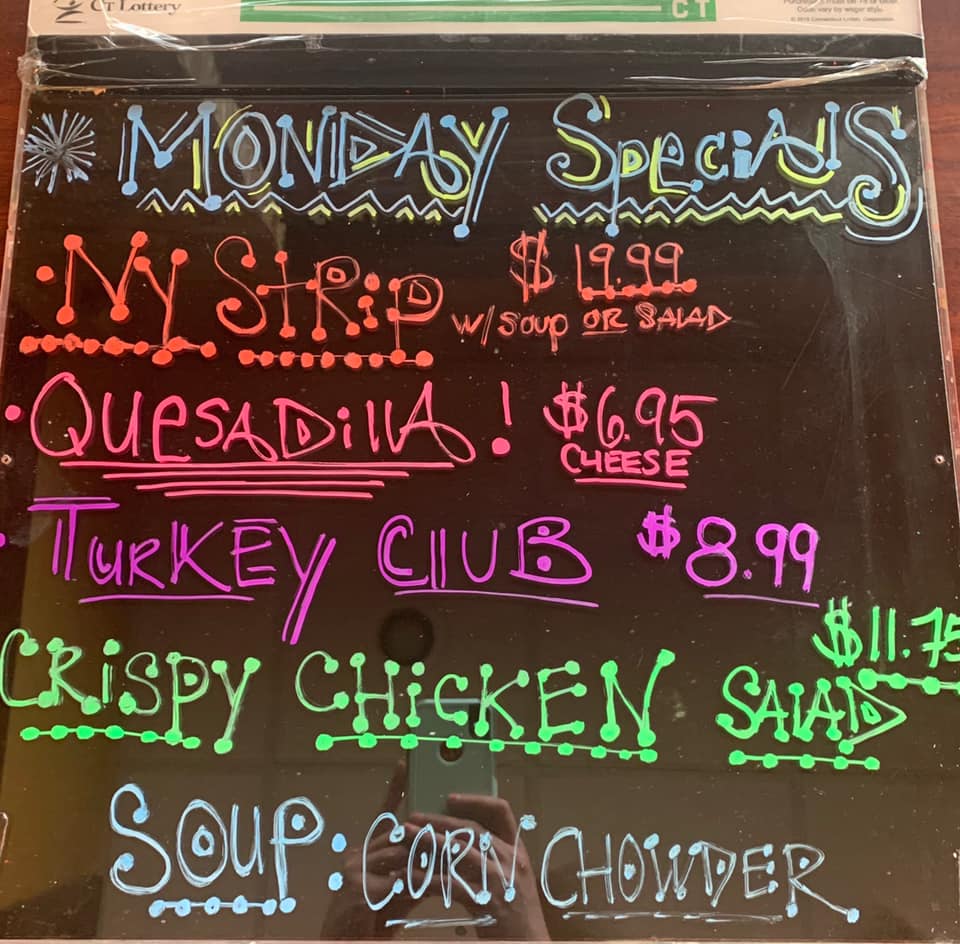 CT Lottery
CT
MONDAY SpeciAlS
• NY StRiP $ 19.99
w/ Soup OR SALAD
• QUESADillA! $6.95
CHEESE
• TURKEY ClUB $8.99
$11.75
CRiSPY CHiCKEN SAlAD
SOUP: CORN CHOWDER